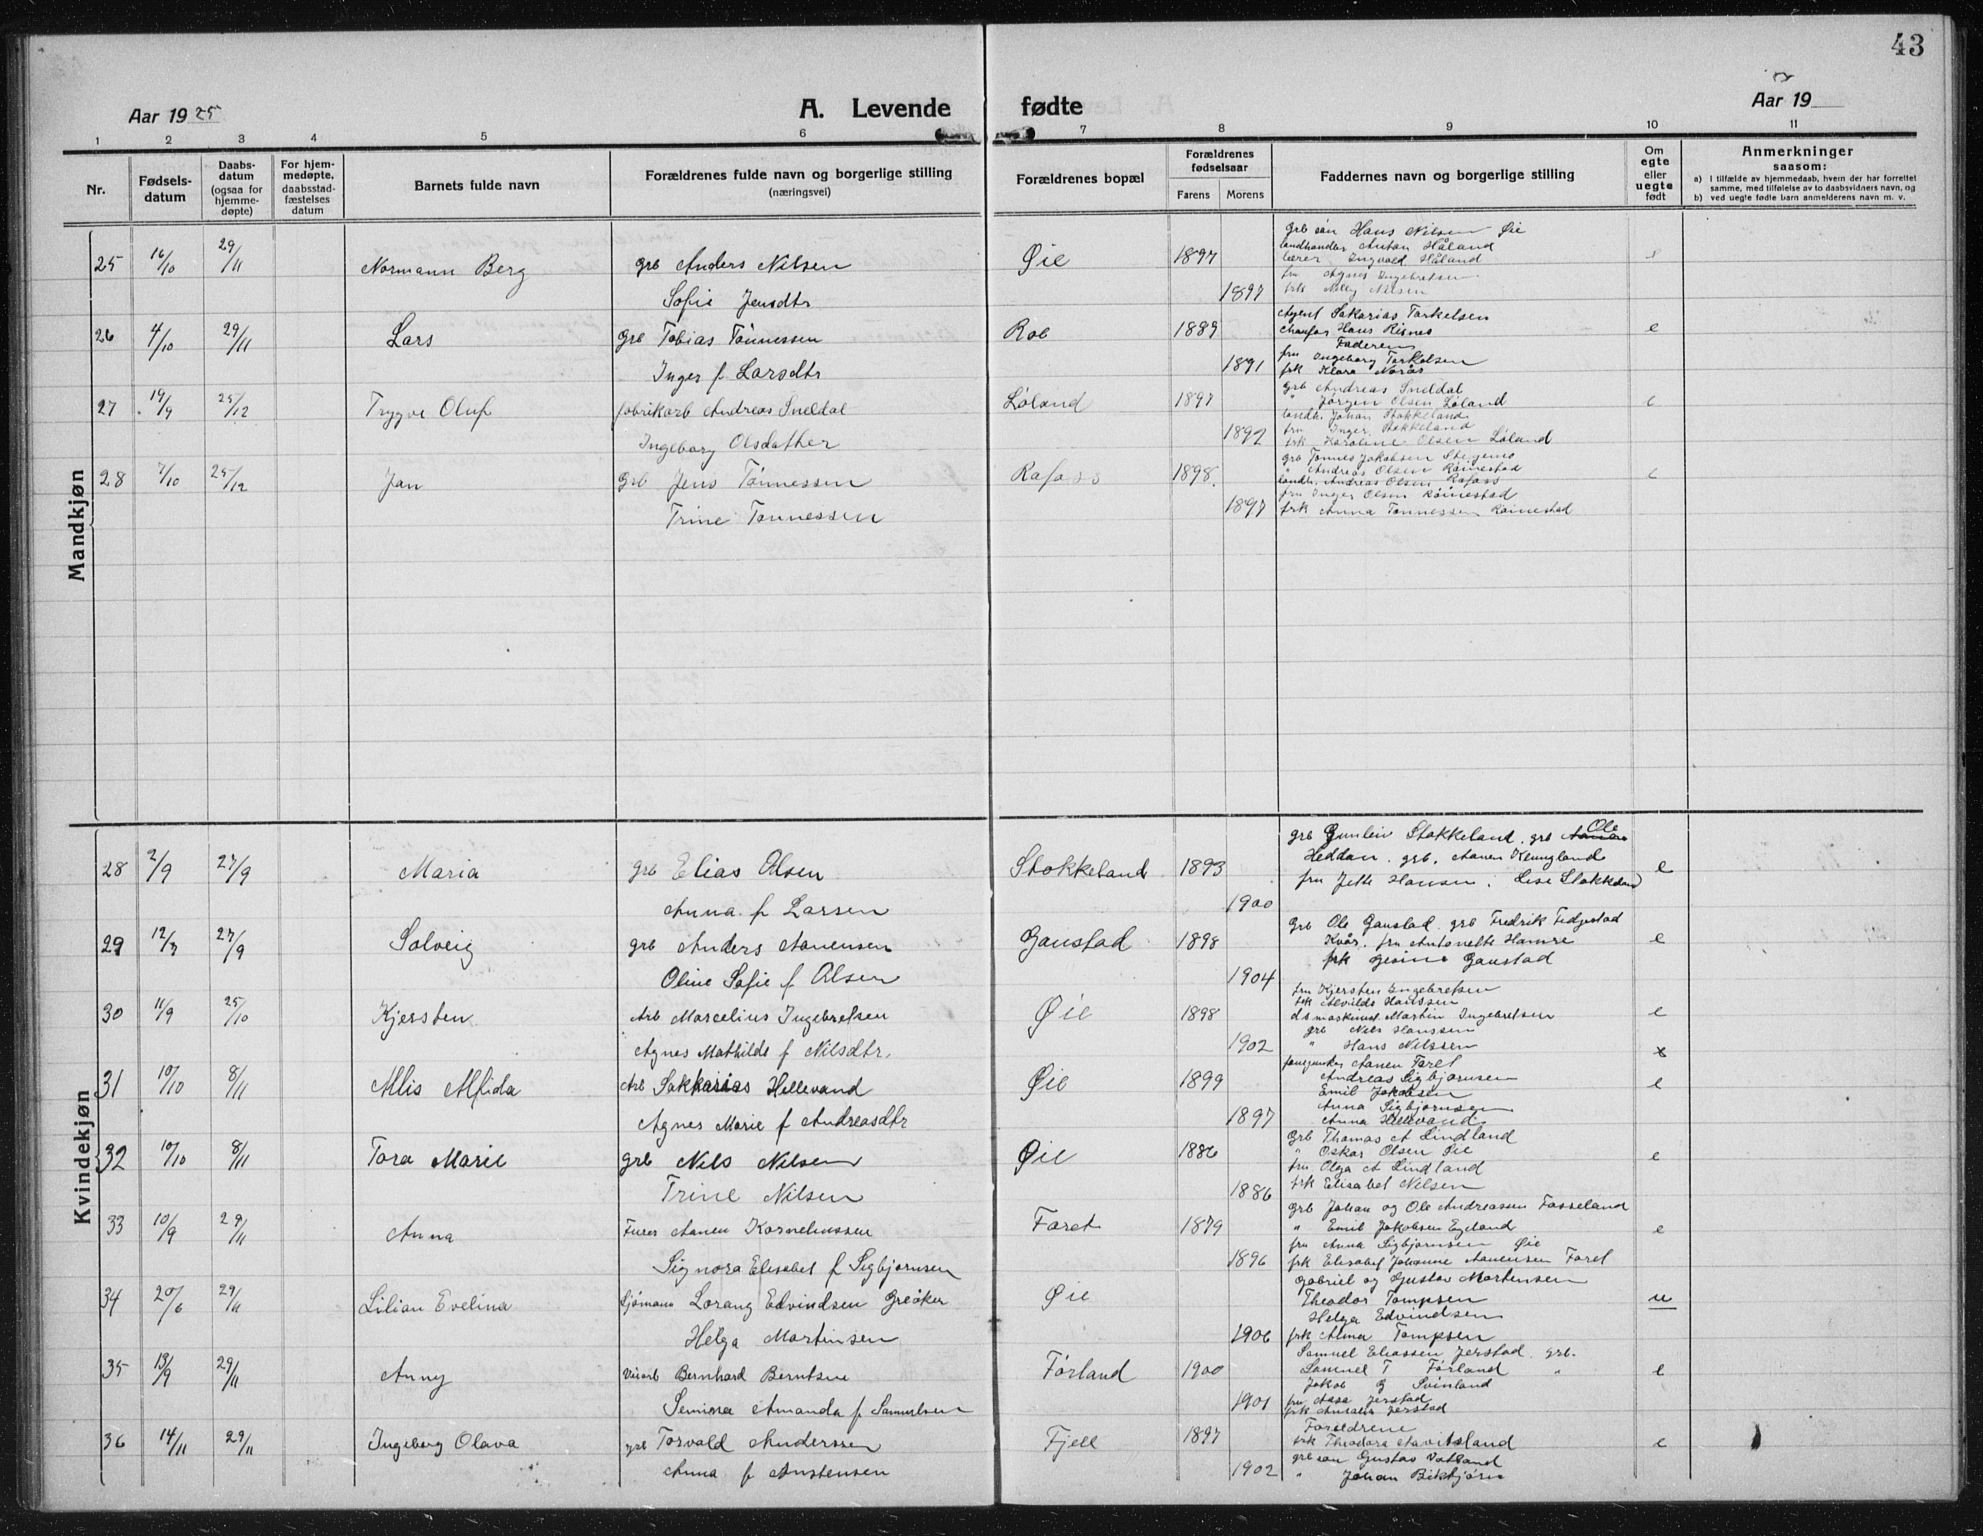 43
Aar 1925
A. Levende fødte
Aar 19
1 2 3 4 5 6 7 8 9 10 11
Nr.
Fødsels-
datum
Daabs-
datum
(ogsaa for
hjemme-
døpte)
For hjem-
medøpte,
daabsstad-
fæstelses
datum
Barnets fulde navn
Forældrenes fulde navn og borgerlige stilling
(næringsvei)
Forældrenes bopæl
Forældrenes
fødselsaar
Farens Morens
Faddernes navn og borgerlige stilling
Om
egte
eller
uegte
født
Anmerkninger
saasom:
a) I tilfælde av hjemmedaab, hvem der har forrettet
samme, med tilføielse av to daabsvidners navn, og
b) ved uegte fødte barn anmelderens navn m. v.
Mandkjøn
25 16/10 29/11 Normann Berg grb Anders Nilsen Øie 1897
Sofie Jensdtr 1897
grb søn Hans Nilsen Øie
landhandler Anton Håland
lærer Ingvald Håland
fru Agnes Ingebretsen
frk Nelly Nilsen
26 4/10 29/11 Lars grb Tobias Tønnessen Rob 1889 e
Inger f Larsdtr 1891
Agent Sakarias Torkelsen
Hans Risnes
Faderen
fru Ingeborg Torkelsen
frk Klara Norås
27 19/9 25/12 Trygve Oluf fabrikarb Andreas Sneldal Løland 1897 e
Ingeborg Olsdather 1892
grb Andreas Sneldal
" Jørgen Olsen Løland
landh. Johan Stokkeland
fru Inger Stokkeland
frk Karoline Olsen Løland
28 7/10 25/12 Jan grb Jens Tønnessen Rafoss 1898 e
Trine Tønnessen 1897
grb Tønnes Jakobsen
" Andreas Olsen Røinestad
landh. Andreas Olsen Rafoss
fru Inger Olsen Røinestad
frk Anna Tønnessen Røinestad
Kvindekjøn
28 2/9 27/9 Maria grb Elias Olsen Stokkeland 1893 e
Anna f Larsen 1900
grb Gunleiv Stokkeland, grb Ole
Heddan, grb. Aanen Keungland
fru Jette Hansen, Lise Stokkeland
29 12/7 27/9 Solveig grb Anders Aanensen Gaustad 1898 e
Oline Sofie f Olsen 1904
Grb Ole Gaustad, grb Fredrik Fidjestad
Kvås, fru Antonette Hamre
frk Gesine Gaustad
30 11/9 25/10 Kjersten Arb Marcelius Ingebretsen Øie 1898 e
Agnes Mathilde f Nilsdtr. 1902
fru Kjersten Ingebretsen
frk Alvilde Hanssen
Martin Ingebretsen
grb Nils Hanssen
" Hans Nilssen x
31 10/10 8/11 Alis Alfida Arb Sakkarias Hellevand Øie 1899 e
Agnes Marie f Andreasdtr 1897
Aanen Faret
Andreas Sigbjørnsen
Emil Jakobsen
Anna Sigbjørnsen
Anna Hellevand
32 10/10 8/11 Tora Marie grb Nils Nilsen Øie 1886 e
Trine Nilsen 1886
Grb Thomas A Lindland
" Oskar Olsen Øie
fru Olga A Lindland
frk Elisabet Nilsen
33 10/9 29/11 Anna Aanen Korneliussen Faret 1879 e
Signora Elisabet f Sigbjørnsen 1896
grb Johan og Ole Andreassen Fosseland
" Emil Jakobsen Egeland
fru Anna Sigbjørnsen Øie
frk Elisabet Johanne Aanensen Faret
34 20/6 29/11 Lilian Evelina Sjømann Lorang Edvindsen Greåker Øie u
Helga Martinsen 1906
Gabriel og Gustav Mortensen
Theodor Tompsen
Helga Edvindsen
frk Alma Tompsen
35 13/9 29/11 Anny Bernhard Berntsen Førland 1900 e
Semine Amanda f Samuelsen 1901
Samuel Eliassen Jerstad grb.
Samuel T Førland "
Jakob G Svinland
fru Aase Jerstad
frk Jerstad
36 14/11 29/11 Ingeborg Olava grb Torvald Anderssen Fjell 1897 e
Anna f Anstensen 1902
Foreldrene
frk Theodora Aavitsland
grb søn Gustav Vatland
" Johan